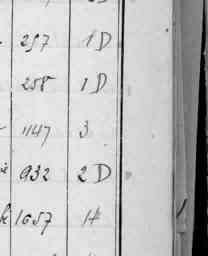 257 1D
258 1D
1147 3
932 2D
1657 1